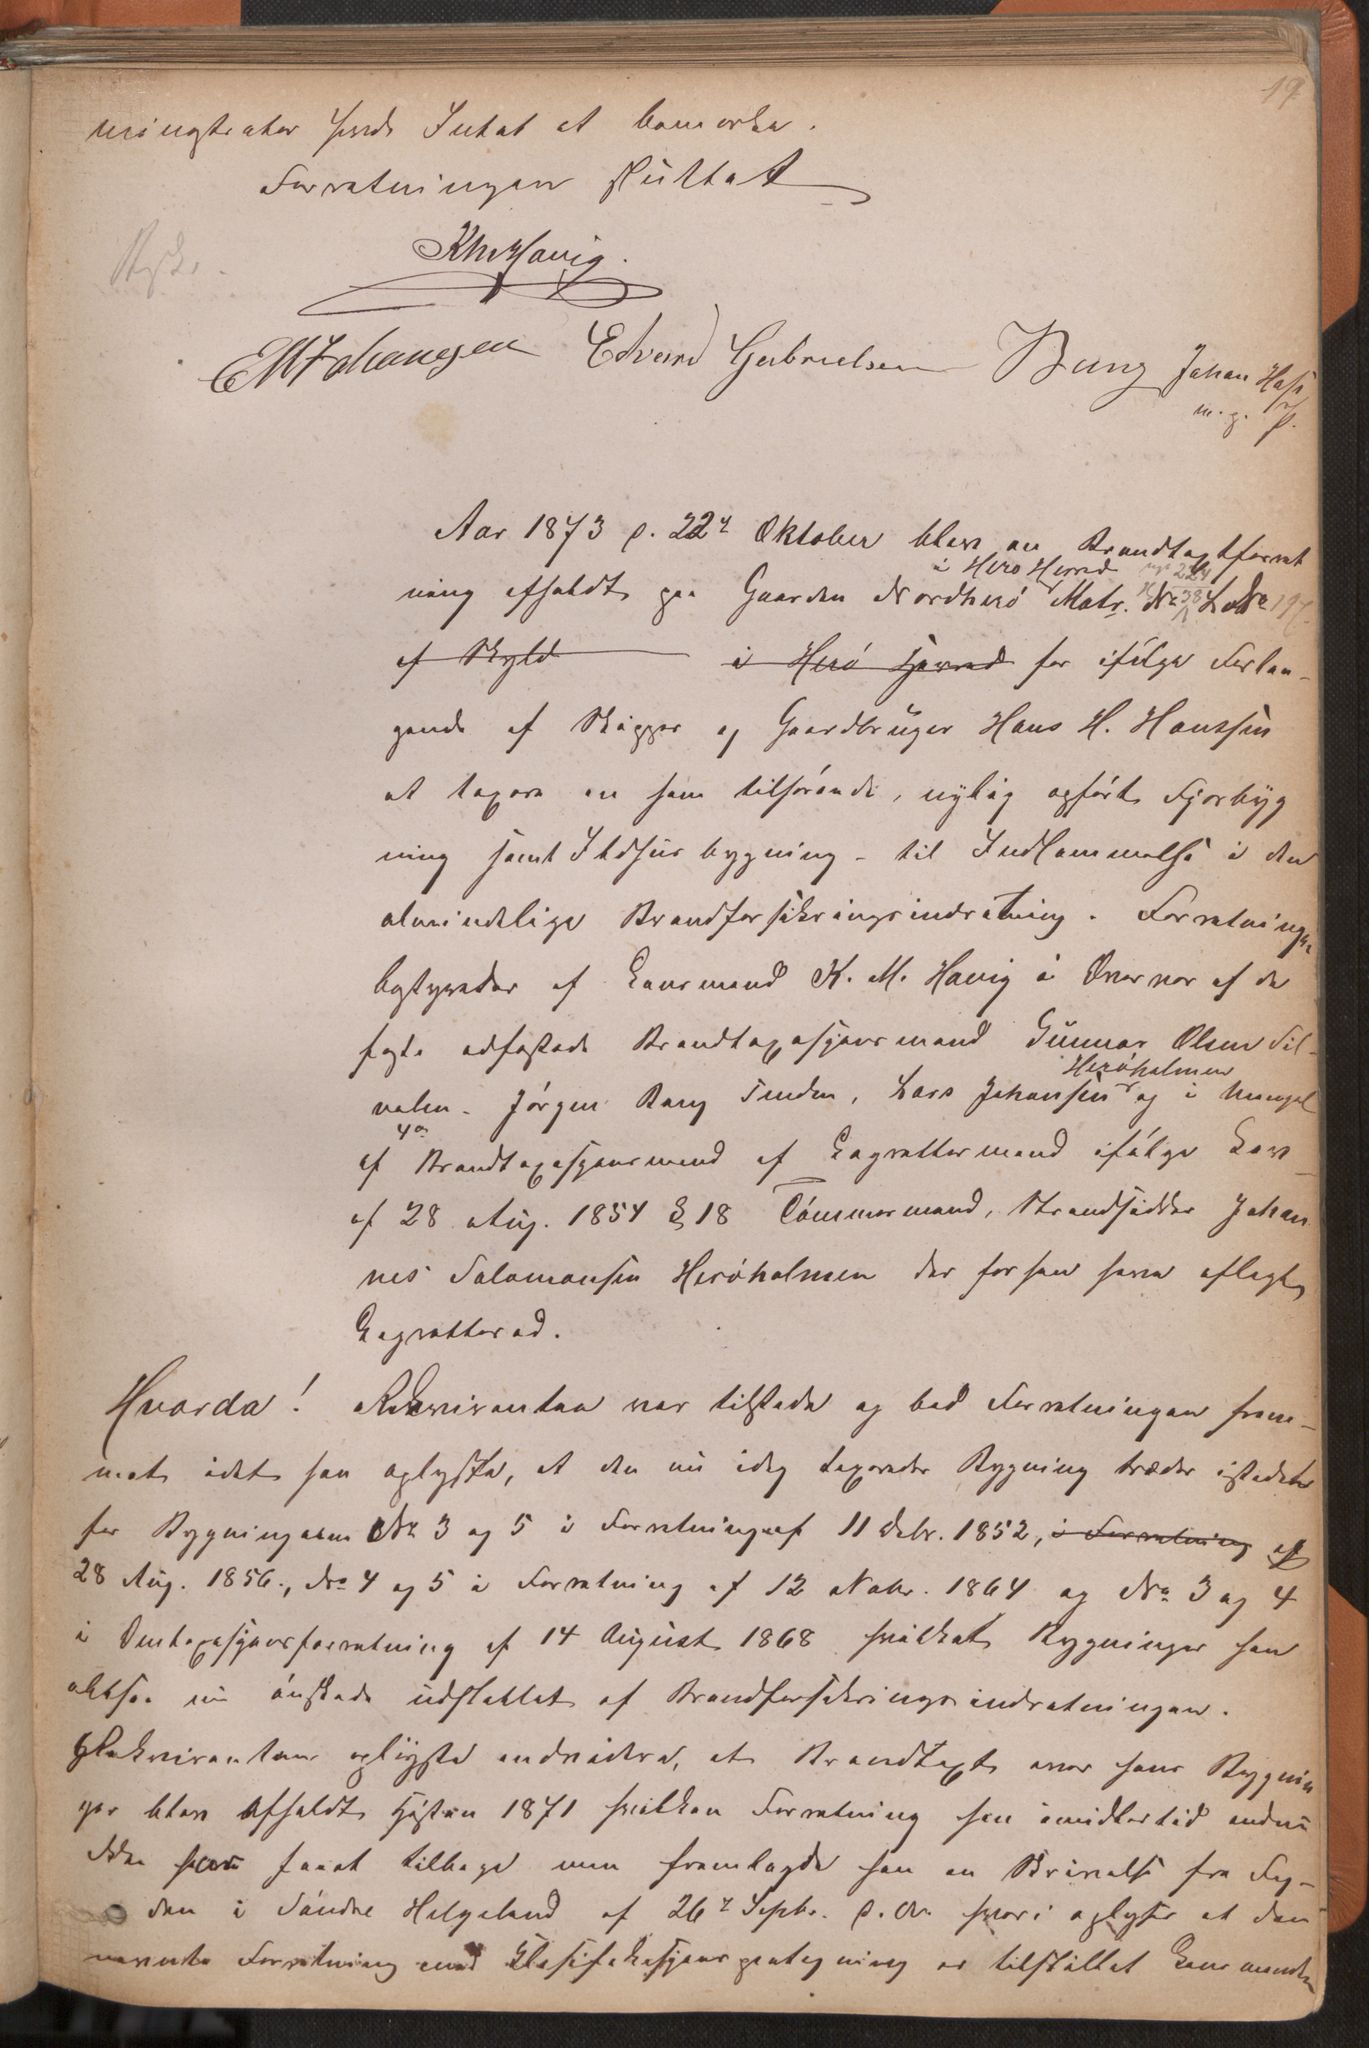 19
ningstester havde Intet at bemærke.
Forretningen sluttet
KMHavig.
EM Johannesen Edvard Gabrielsen Bang Johan Hass
m. p. P.
Aar 1873 d. 22de Oktober blev en Brandtaxtforret
i Herø Herred
ning afholdt paa Gaarden Nordherø Matr. No 38 L No 197
af Skyld i Herø Herred for ifølge Forlan-
gende af Skipper og Gaardbruger Hans H. Hanssen
at taxere en ham tilhørende, nylig opført Fjøsbyg
ning samt Ildhusbygning - til Indlemmelse i den
almindelige Brandforsikringsindretning. Forretningen
bestyredes af Lensmand K. M. Havig i Overvær af de
faste edfæstede Brandtaxasjonsmænd Gunnar Olsen Sil-
Herøholmen
valen - Jørgen Bang Tenden, Lars Johansen og i Mangel
4de
af Brandtaxasjonsmand af Lagrettesmand ifølge Lov
af 28 Aug. 1854 § 18 Tømmermand, Strandsidder Johan
nes Salomonsen Herøholmen der forhen have aflagt
Lagretteed.
Hvorda! Rekvirenten var tilstede og bad Forretningen frem-
met idet han oplyste, at den nu idag taxerede Bygning træder istedet
for Bygningerne No 3 og 5 i Forretning af 11 Debr. 1852, i Forretning af
28 Aug. 1856, No 4 og 5 i Forretning af 12 Nobr. 1864 og No 3 og 4
i Omtaxasjonsforretning af 14 August 1868 hvilket Bygninger han
altsaa nu ønskede udslettet af Brandforsikringsindretningen.
Rekvirenten oplyste endvidere, at Brandtaxt over hans Bygnin
ger blev afholdt Høsten 1871 hvilken Forretning han imidlertid endnu
ikke have faaet tilbage men fremlagde han en Skrivelse fra Fog-
den i Søndre Helgeland af 26de Septbr. d. A. hvori oplyses at den
nævnte Forretning med Klasifikasjonspaategning er tilstillet Lensmanden